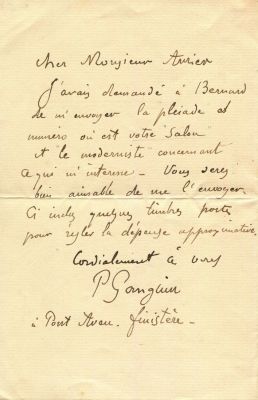 Cher Monsieur Aurier
J'avais demandé à Bernard
de m'envoyer la pleiade et
numéro où est votre Salon
et le moderniste concernant
ce qui m'interesse - Vous serez
bien aimable de me l'envoyer
Ci inclus quelques timbres poste
pour regler la depense approximative.
Cordialement à vous
P Gauguin
à Pont Aven. finistère -